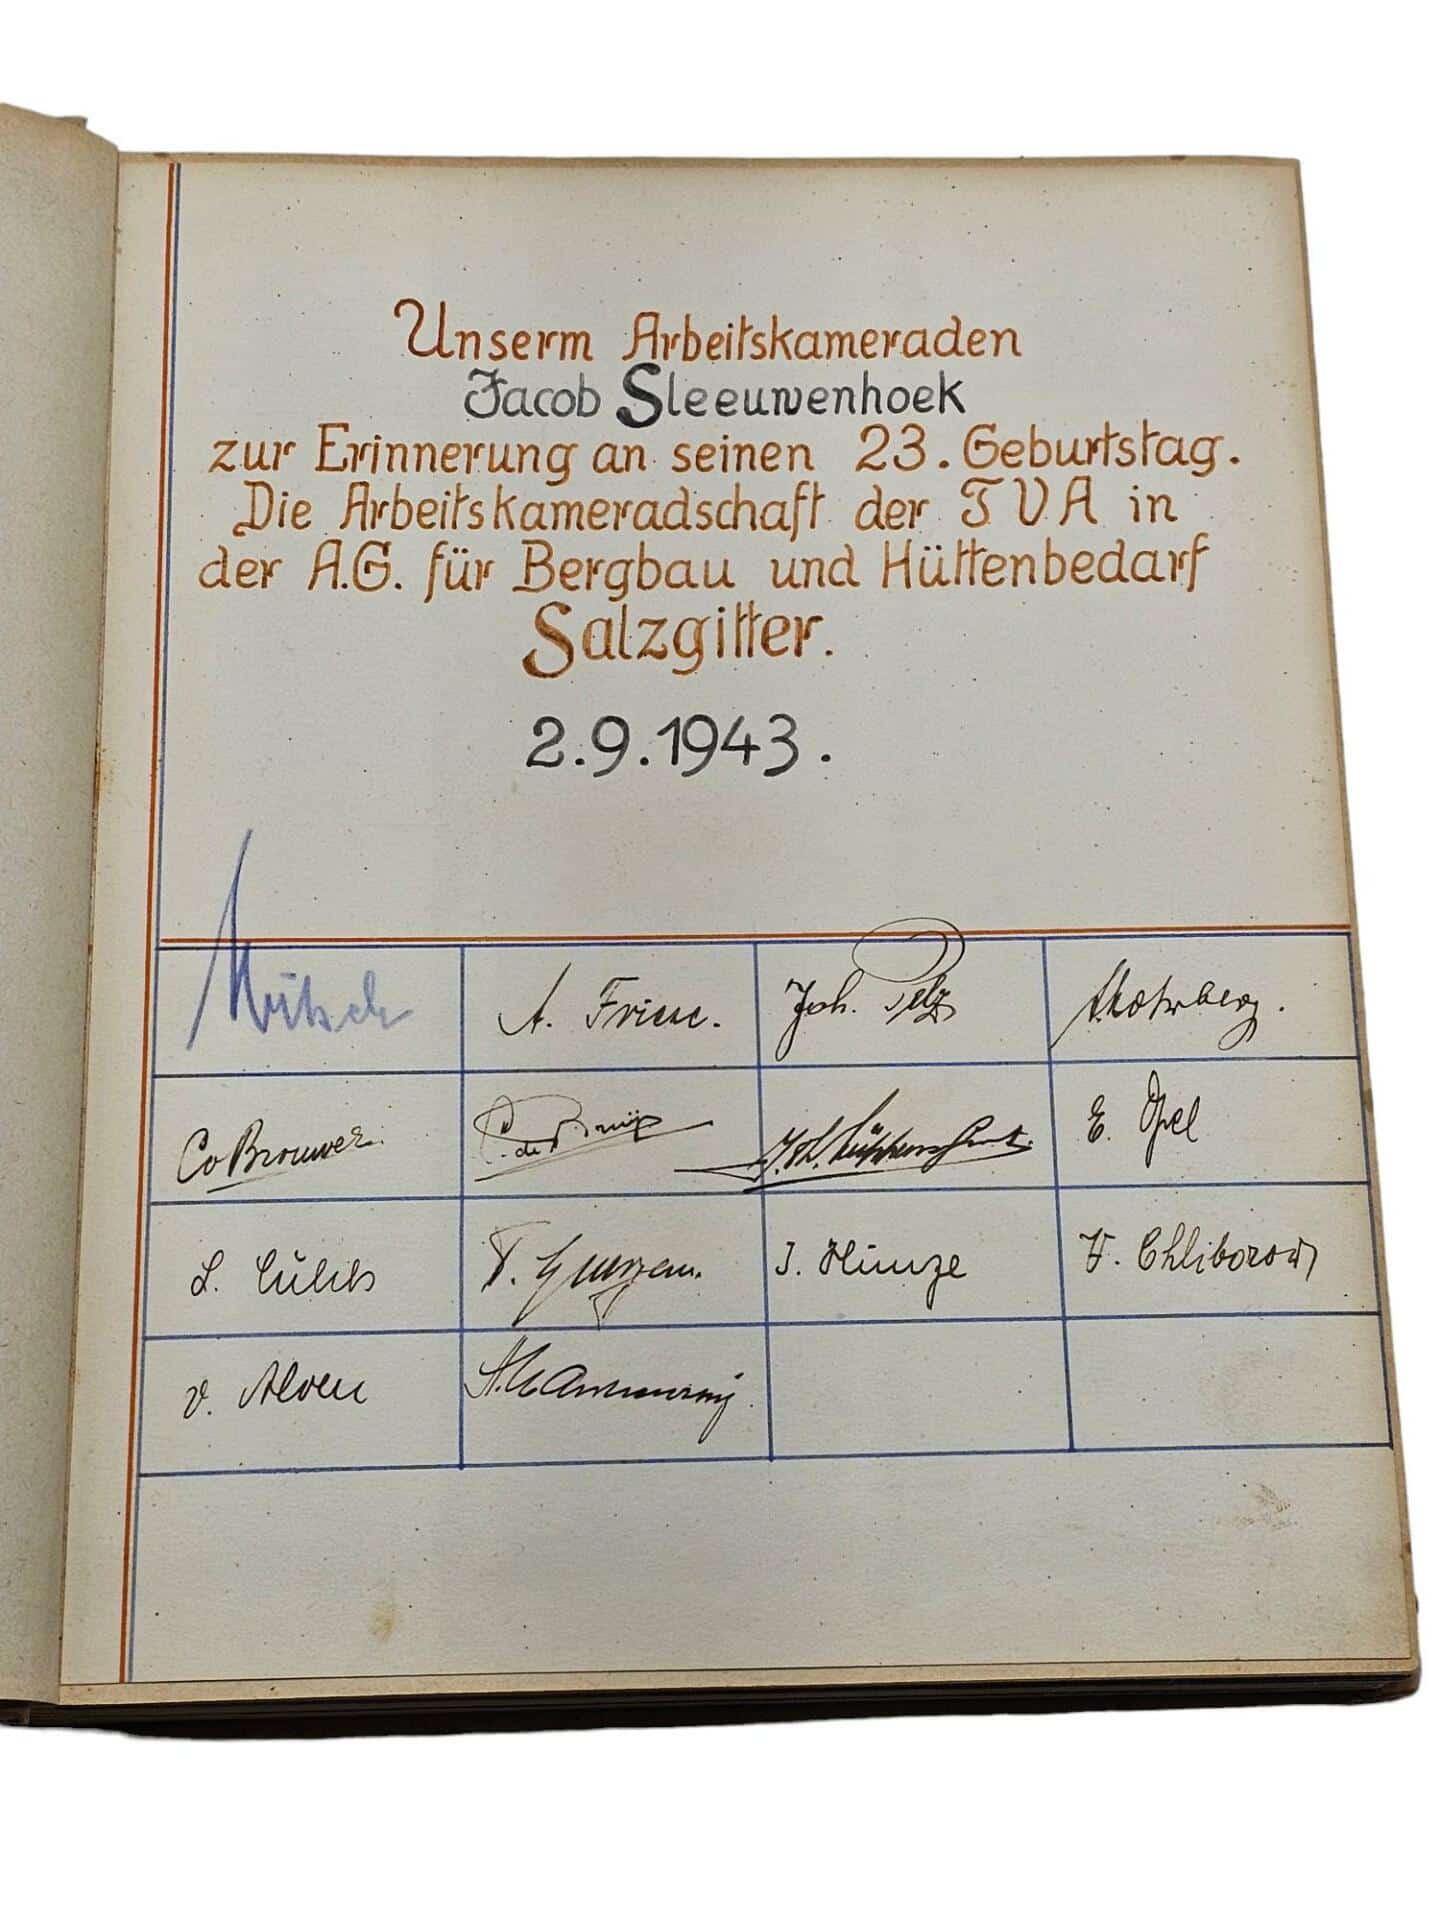 Unserm Arbeitskameraden
Jacob Sleeuwenhoek
zur Erinnerung an seinen 23. Geburtstag.
Die Arbeitskameradschaft der TVA in
der A.G. für Bergbau und Hüttenbedarf
Salzgitter.
2.9.1943.
A. Friese. Joh. Pelz
Co Brouwer. C. de Bruijn E. Opel
J. Hinze V. Chliborow
v. Alven